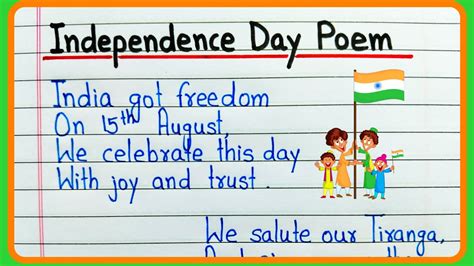 Independence Day Poem
India got freedom
On 15th August,
We celebrate this day
With joy and trust.
We salute our Tiranga,